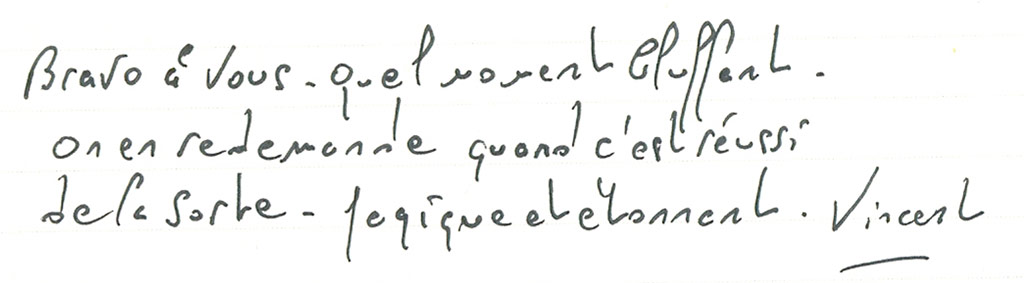 Bravo à Vous. Quel moment bluffant.
on en redemande quand c'est réussi
de la sorte. Magique et étonnant. Vincent